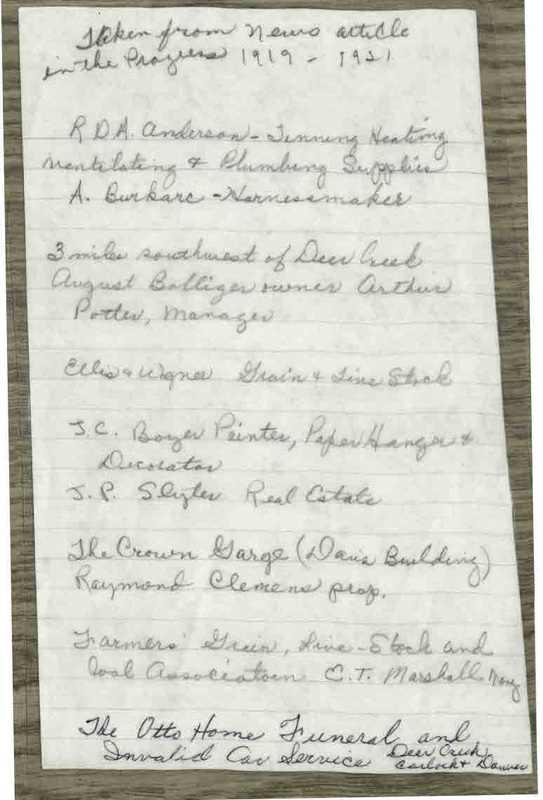 Taken from News article
in the Progress 1919 - 1921
R D.A. Anderson - Tinning Heating
Ventilating & Plumbing Supplies
A. Burkarc - Harnessmaker
3 miles southwest of Deer Creek
August Bolliger owner Arthur
Potter, Manager
Ellis & Wgner Grain & Live Stock
J.C. Boyer Painter, Paper Hanger &
Decorator
J.P. Slyter Real Estate
The Crown Garge (Davis Building)
Raymond Clemens prop.
Farmers' Grain, Live-Stock and
Association C.T. Marshall
The Otto Home Funeral and
Invalid Car Service Deer Creek
Carlock & Danvers